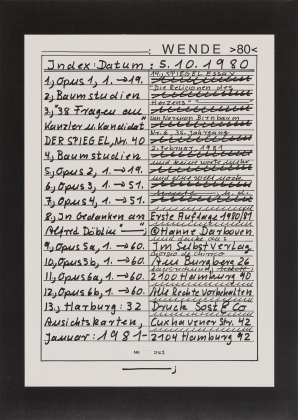 WENDE >80<
Index: Datum: 5.10.1980
1, Opus 1, 1. → 19.
2, Baumstudien
3, "38 Fragen an
Kanzler u. Kandidat"
DER SPIEGEL, Nr. 40
4, Baumstudien
5, Opus 2, 1. → 19.
6, Opus 3, 1. → 51.
7, Opus 4, 1. → 51.
8, In Gedanken an
Alfred Döblin
9, Opus 5a, 1. → 60.
10, Opus 5b, 1. → 60.
11, Opus 6a, 1. → 60.
12, Opus 6b, 1. → 60.
13, Harburg: 32
Ansichtskarten,
Januar: 1981-
14, SPIEGEL Essay
"Die Religionen des
Herzens"
von Norman Birnbaum
Nr. 6, 35. Jahrgang
2. Februar, 1981
und keine worte mehr
Erste Auflage 1980/81
© Hanne Darboven
Im Selbstverlag
Am Burgberg 26
2100 Hamburg 90
Alle Rechte vorbehalten
Druck Sost & Co
Cuxhavener Str. 42
2104 Hamburg 92